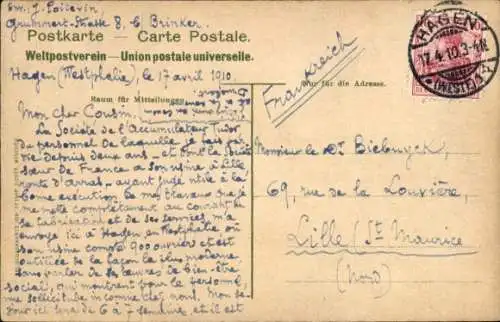 Env. J. Poitevin
Grummert-Straße 8, c/o Brinker.
Postkarte - Carte Postale.
Weltpostverein — Union postale universelle.
HAGEN
17.4.10.3-4N.
(WESTF.)
Hagen (Westphalie), le 17 avril 1910.
Frankreich
Raum für Mitteilungen
Nur für die Adresse.
Mon cher Cousin,
La Société de l'Accumulateur Tudor
du personnel de laquelle je fais par-
tie depuis deux ans - et dont la Société
sœur de France a son usine à Lille
route d'Arras - ayant jugé utile à la
bonne exécution de mes travaux que je
me mette complètement au courant de
sa fabrication et de ses services, m'a
envoyé ici à Hagen en Westphalie où
son usine compte 900 ouvriers et est
outillée de la façon la plus moderne,
sans parler de ses œuvres de bien-être
social, qui montrent pour le personnel,
une sollicitude inconnue chez nous. Mon sé-
jour ici sera de 6 à 7 semaines et il est
Monsieur le Dr Biebuyck,
69, rue de la Louvière,
Lille (St Maurice)
(Nord)